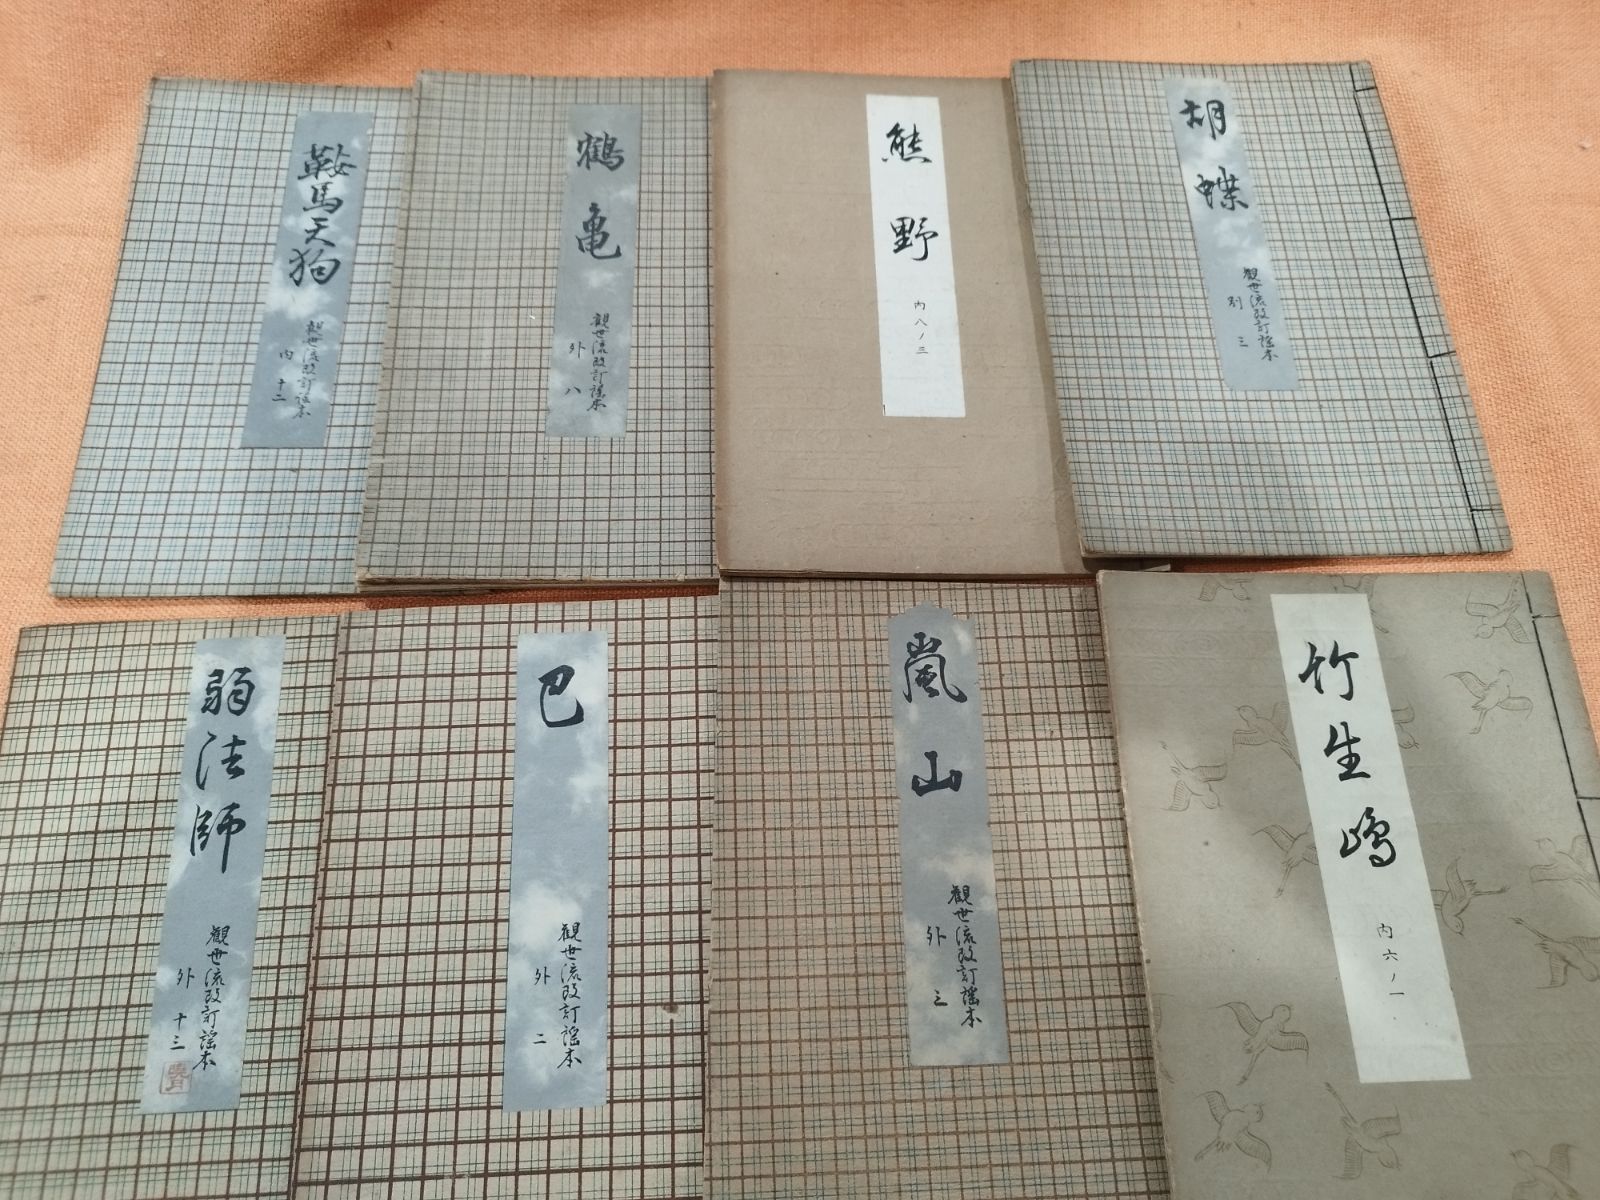 鞍馬天狗
觀世流改訂謡本
内 十二
鶴亀
觀世流改訂謡本
外 八
熊野
内八ノ三
胡蝶
觀世流改訂謡本
別 三
弱法師
觀世流改訂謡本
外 十三
巴
觀世流改訂謡本
外 二
嵐山
觀世流改訂謡本
外 三
竹生嶋
内六ノ一